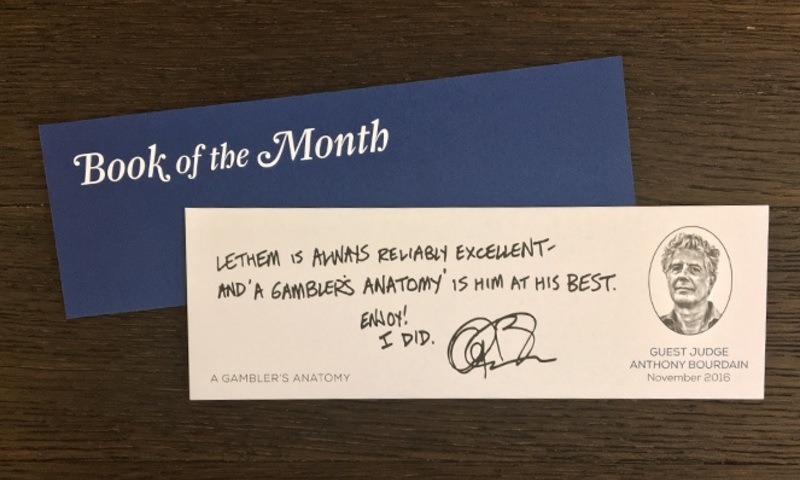 Book of the Month
LETHEM IS ALWAYS RELIABLY EXCELLENT-
AND 'A GAMBLER'S ANATOMY' IS HIM AT HIS BEST.
ENJOY!
I DID.
A GAMBLER'S ANATOMY
GUEST JUDGE
ANTHONY BOURDAIN
November 2016